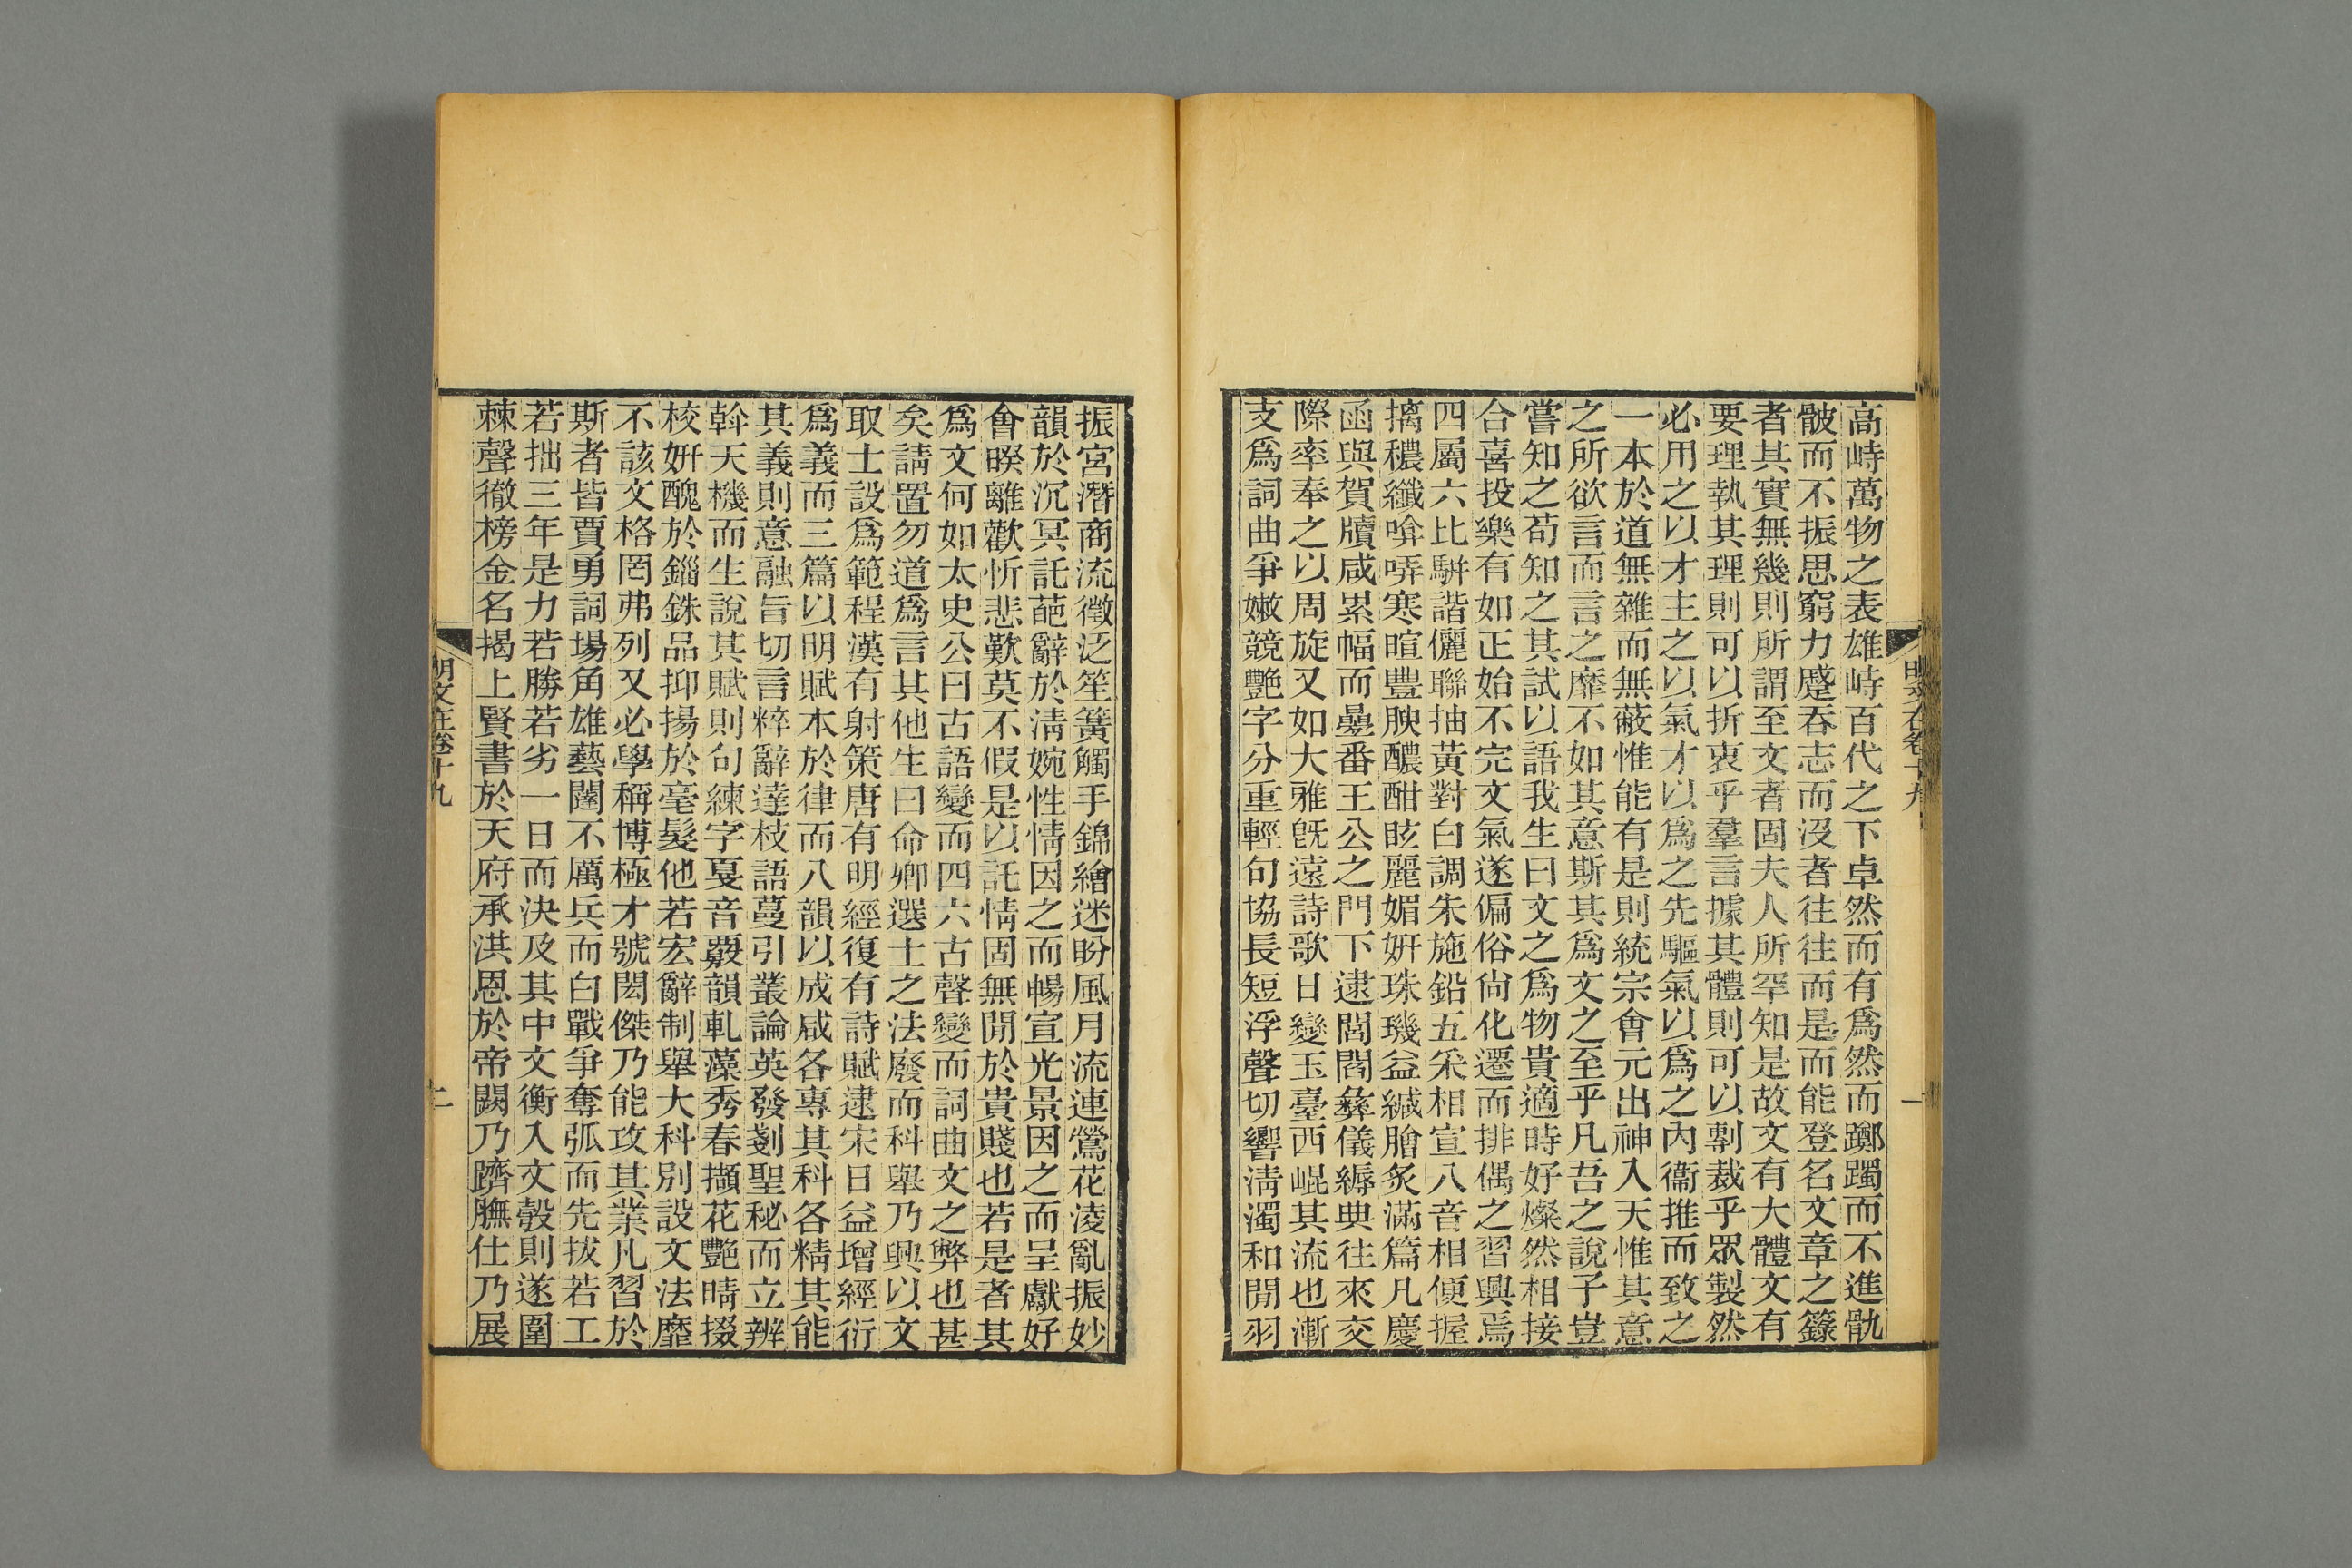 高峙萬物之表雄峙百代之下卓然而有爲然而躑躅而不進骩
骳而不振思窮力蹙吞志而沒者往往而是而能登名文章之籙
者其實無幾則所謂至文者固夫人所罕知是故文有大體文有
要理執其理則可以折衷乎羣言據其體則可以剸裁乎眾製然
必用之以才主之以氣才以爲之先驅氣以爲之內衞推而致之
一本於道無雜而無蔽惟能有是則統宗會元出神入天惟其意
之所欲言而言之靡不如其意斯其爲文之至乎凡吾之說子豈
嘗知之苟知之其試以語我生曰文之爲物貴適時好燦然相接
合喜投樂有如正始不完文氣遂偏俗尙化遷而排偶之習興焉
四屬六比駢諧儷聯抽黃對白調朱施鉛五采相宣八音相便握
摛穠纖喩哢寒暄豐腴醲酣眩麗媚妍珠璣益緘膾炙滿篇凡慶
函與賀牘咸累幅而曡番王公之門下逮閭閻彝儀縟典往來交
際率奉之以周旋又如大雅旣遠詩歌日變玉臺西崐其流也漸
支爲詞曲爭嫩競艷字分重輕句協長短浮聲切響淸濁和閒羽
明文在卷十九
一
振宮潛商流徵泛笙簧觸手錦繪迷盼風月流連鶯花淩亂振妙
韻於沉冥託葩辭於淸婉性情因之而暢宣光景因之而呈獻好
會暌離歡忻悲歎莫不假是以託情固無閒於貴賤也若是者其
爲文何如太史公曰古語變而四六古聲變而詞曲文之弊也甚
矣請置勿道爲言其他生曰命鄉選士之法廢而科舉乃興以文
取士設爲範程漢有射策唐有明經復有詩賦逮宋日益增經衍
爲義而三篇以明賦本於律而八韻以成咸各專其科各精其能
其義則意融旨切言粹辭達枝語蔓引叢論英發剗聖秘而立辨
斡天機而生說其賦則句練字戛音覈韻軋藻秀春擷花艷晴掇
校妍醜於錙銖品抑揚於毫髮他若宏辭制舉大科別設文法靡
不該文格罔弗列又必學稱博極才號閎傑乃能攻其業凡習於
斯者皆賈勇詞場角雄藝闈不厲兵而白戰爭奪弧而先拔若工
若拙三年是力若勝若劣一日而決及其中文衡入文彀則遂圍
棘聲徹榜金名揭上賢書於天府承洪恩於帝闕乃躋膴仕乃展
明文在卷十九
二